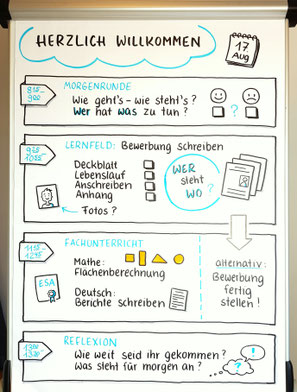 HERZLICH WILLKOMMEN
17
Aug
MORGENRUNDE
Wie geht's - wie steht's?
Wer hat was zu tun?
?
LERNFELD: Bewerbung schreiben
Deckblatt
Lebenslauf
Anschreiben
Anhang
Fotos?
WER
steht
WO?
FACHUNTERRICHT
Mathe:
Flächenberechnung
Deutsch:
Berichte schreiben
ESA
alternativ:
Bewerbung
fertig
stellen!
REFLEXION
Wie weit seid ihr gekommen?
Was steht für morgen an?
...?
!